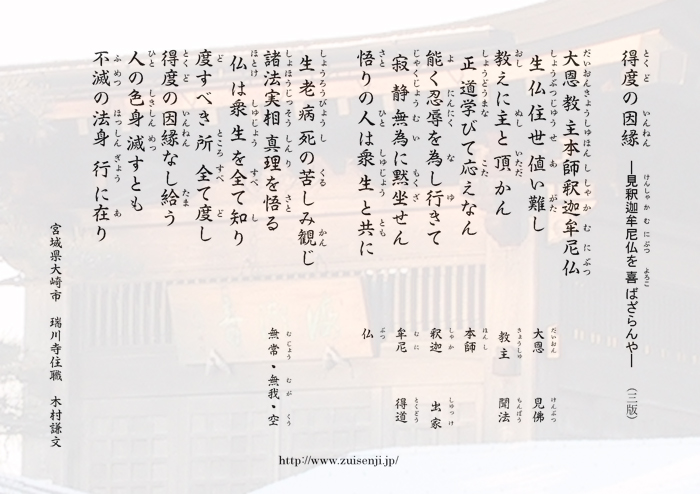 得度の因縁 ―見釈迦牟尼仏を喜ばざらんや― (三版)
大恩教主本師釈迦牟尼仏
生仏住世値い難し
教えに主と頂かん
正道学びて応えなん
能く忍辱を為し行きて
寂静無為に黙坐せん
悟りの人は衆生と共に
生老病死の苦しみ観じ
諸法実相真理を悟る
仏は衆生を全て知り
度すべき所全て度し
得度の因縁なし給う
人の色身滅すとも
不滅の法身行に在り
大恩 見佛
教主 聞法
本師
釈迦 出家
牟尼 得道
仏
無常・無我・空
宮城県大崎市 瑞川寺住職 木村謙文
http://www.zuisenji.jp/